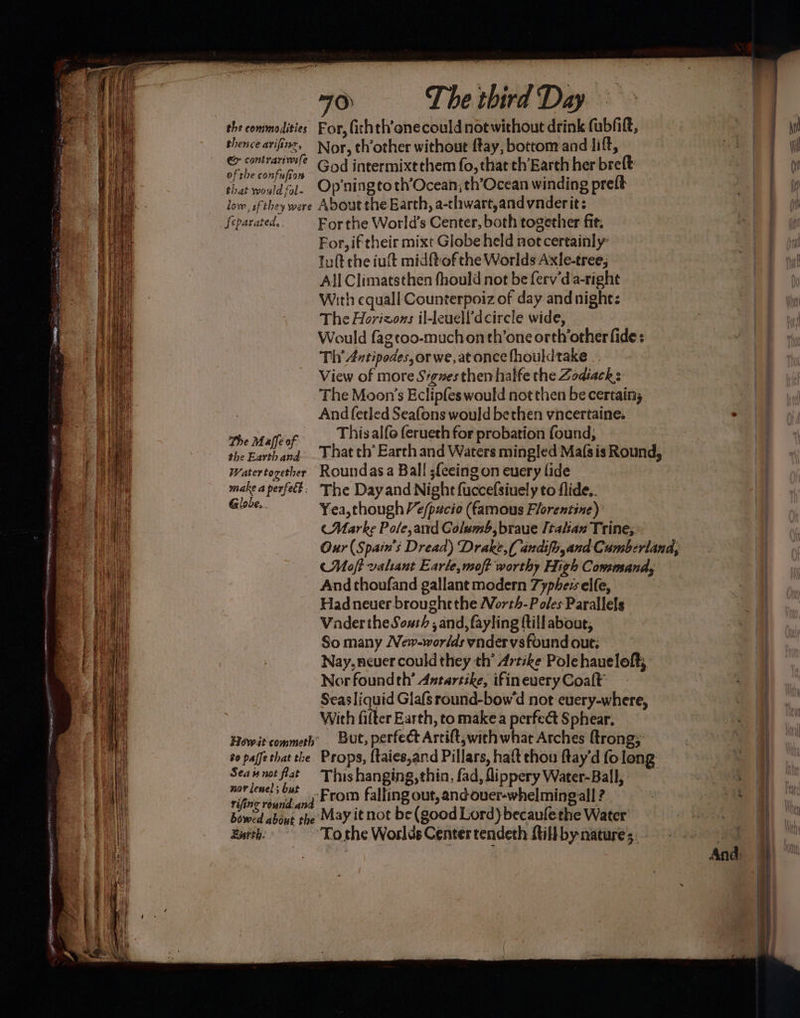 70 The third Day
the commodities
thence arising,
& contrariwise
of the confusion
that would fol-
low, if they were
separated.
For, sith th'one could not without drink subsist,
Nor, th'other without stay, bottom and list,
God intermixt them so, that th'Earth her brest
Op'ning to th'Ocean, th'Ocean winding prest
About the Earth, a-thwart, and vnder it:
For the World's Center, both together fit.
For, if their mixt Globe held not certainly
Iust the iust midst of the Worlds Axle-tree,
All Climats then should not be serv'd a-right
With equall Counterpoiz of day and night:
The Horizons il-leuell'd circle wide,
Would sag too-much on th'one or th'other side:
Th' Antipodes, or we, at once should take
View of more Signes then halfe the Zodiack:
The Moon's Eclipses would not then be certain,
And setled Seasons would be then vncertaine.
The Masse of
the Earth and
Water together
make a perfect
Globe.
This also serueth for probation sound,
That th' Earth and Waters mingled Mass is Round,
Round as a Ball; seeing on euery side
The Day and Night successiuely to slide.
Yea, though Vespucio (famous Florentine)
Marke Pole, and Columb, braue Italian Trine,
Our (Spain's Dread) Drake, Candish, and Cumberland,
Most valiant Earle, most worthy High Command,
And thousand gallant modern Typheis else,
Had neuer brought the North-Poles Parallels
Vnder the South; and, sayling still about,
So many New-worlds vnder vs found out.
Nay, neuer could they th' Artike Pole haue lost,
Nor found th' Antartike, if in euery Coast
Seas liquid Glass round-bow'd not euery-where,
With sister Earth, to make a perfect Sphear.
How it commeth
to passe that the
Sea is not flat
nor leuel; but
rising round and
bowed about the
Earth.
But, perfect Artist, with what Arches strong,
Props, staies, and Pillars, hast thou stay'd so long
This hanging, thin, sad, slippery Water-Ball,
From falling out, and ouer-whelming all?
May it not be (good Lord) because the Water
To the Worlds Center tendeth still by nature;
And